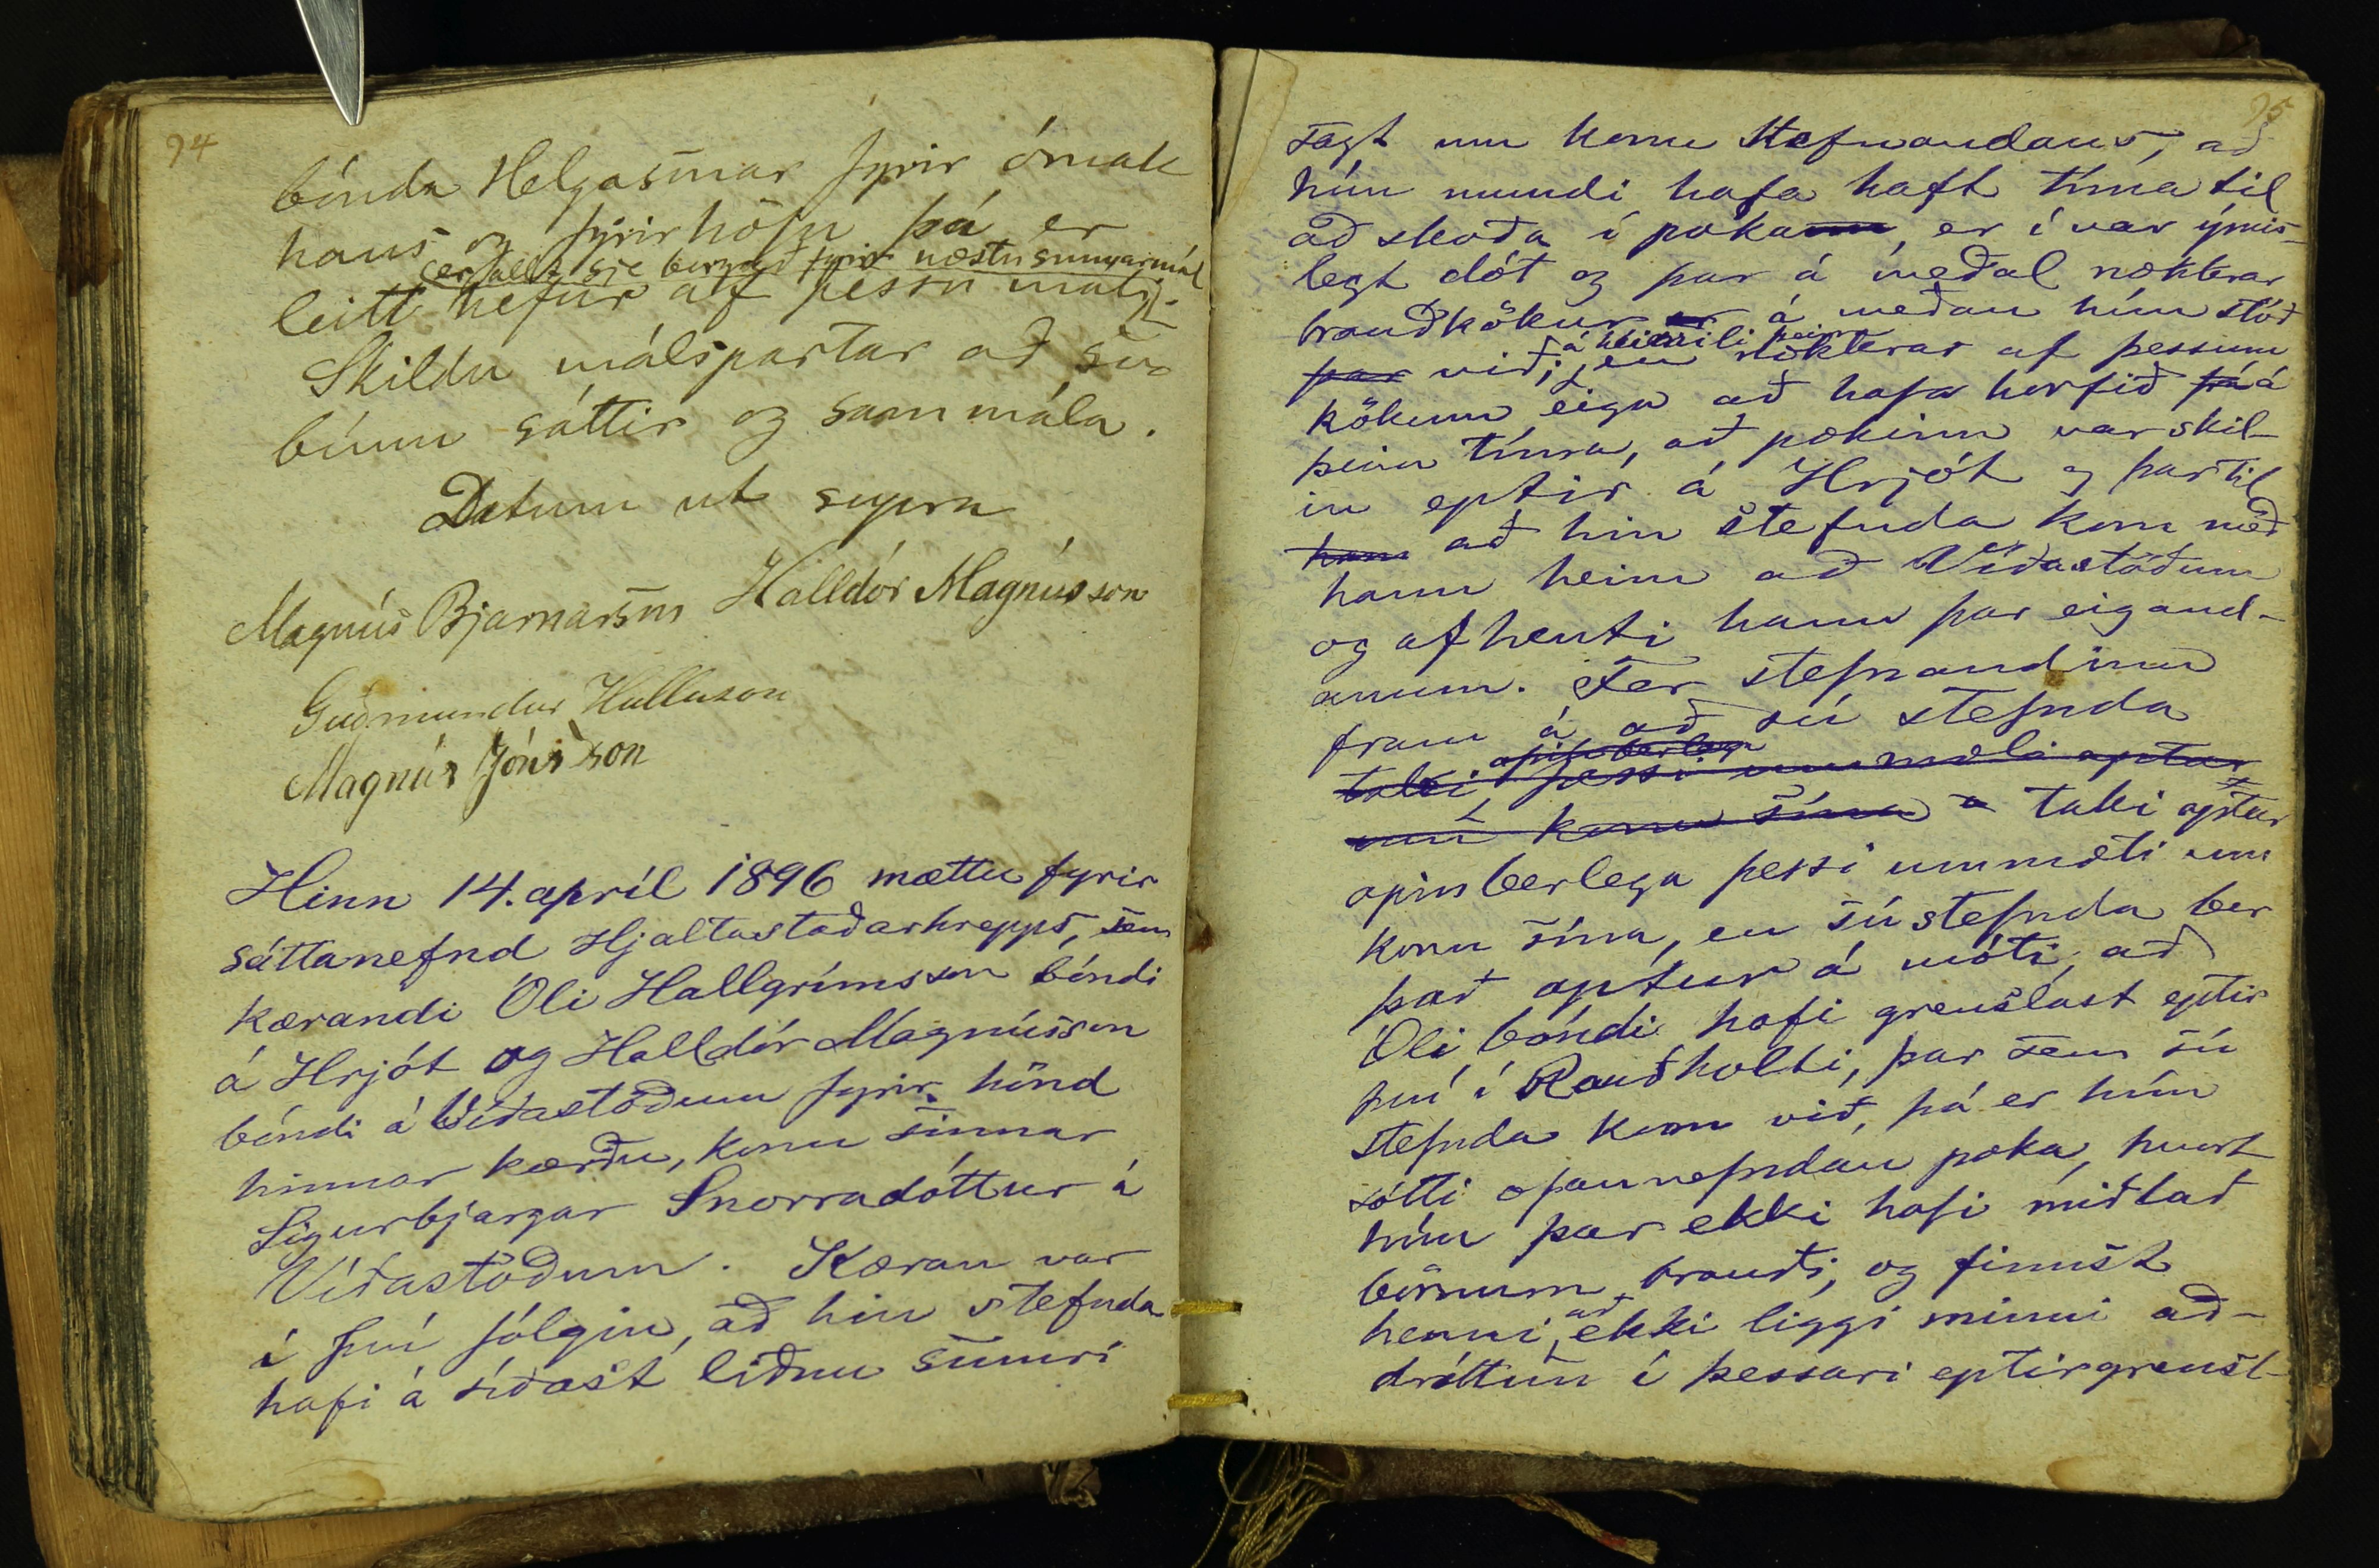 94
bónda Helgasonar fyrir ómak
hans og fyrirhöfn þá er
er allt sje borgað fyrir næstu sumarmál
leitt hefur af þessu máli.
Skildu málspartar að svo
búnu sáttir og sammála.
Datum ut supra
Magnús Bjarnarson Halldór Magnússon
Guðmundur Hallason
Magnús Jónsson
Hinn 14. apríl 1896 mættu fyrir
sáttanefnd Hjaltastaðarhrepps, sem
kærandi Óli Hallgrímsson bóndi
á Hrjót og Halldór Magnússon
bóndi á Víðastöðum fyrir hönd
hinnar kærðu, konu sinnar
Sigurbjargar Snorradóttur á
Víðastöðum. Kæran var
í því fólgin, að hin stefnda
hafi á síðast liðnu sumri
95
sagt um konu stefnandans, að
hún mundi hafa haft tíma til
að skoða í poka, er í var ýmis-
legt dót og þar á meðal nokkrar
brauðkökur á meðan hún stóð
á heimili þeirra
þar við; en nokkrar af þessum
kökum eiga að hafa horfið frá á
þeim tíma, að pokinn var skil-
in eptir á Hrjót og þar til
hann að hin stefnda kom með
hann heim að Víðastöðum
og afhenti hann þar eigand-
anum. Fer stefnandinn
fram á að sú stefnda
opinberlega
taki þessi ummæli aptur
um konu sína taki aptur
opinberlega þessi ummæli um
konu sína, en sú stefnda ber
það aptur á móti, að
Óli bóndi hafi grenslast eptir
því í Rauðholti, þar sem sú
stefnda kom við, þá er hún
sótti ofannefndan poka, hvort
hún þar ekki hafi miðlað
börnum brauði, og finnst
að
henni, ekki liggi minni að-
dróttun í þessari eptirgrensl-